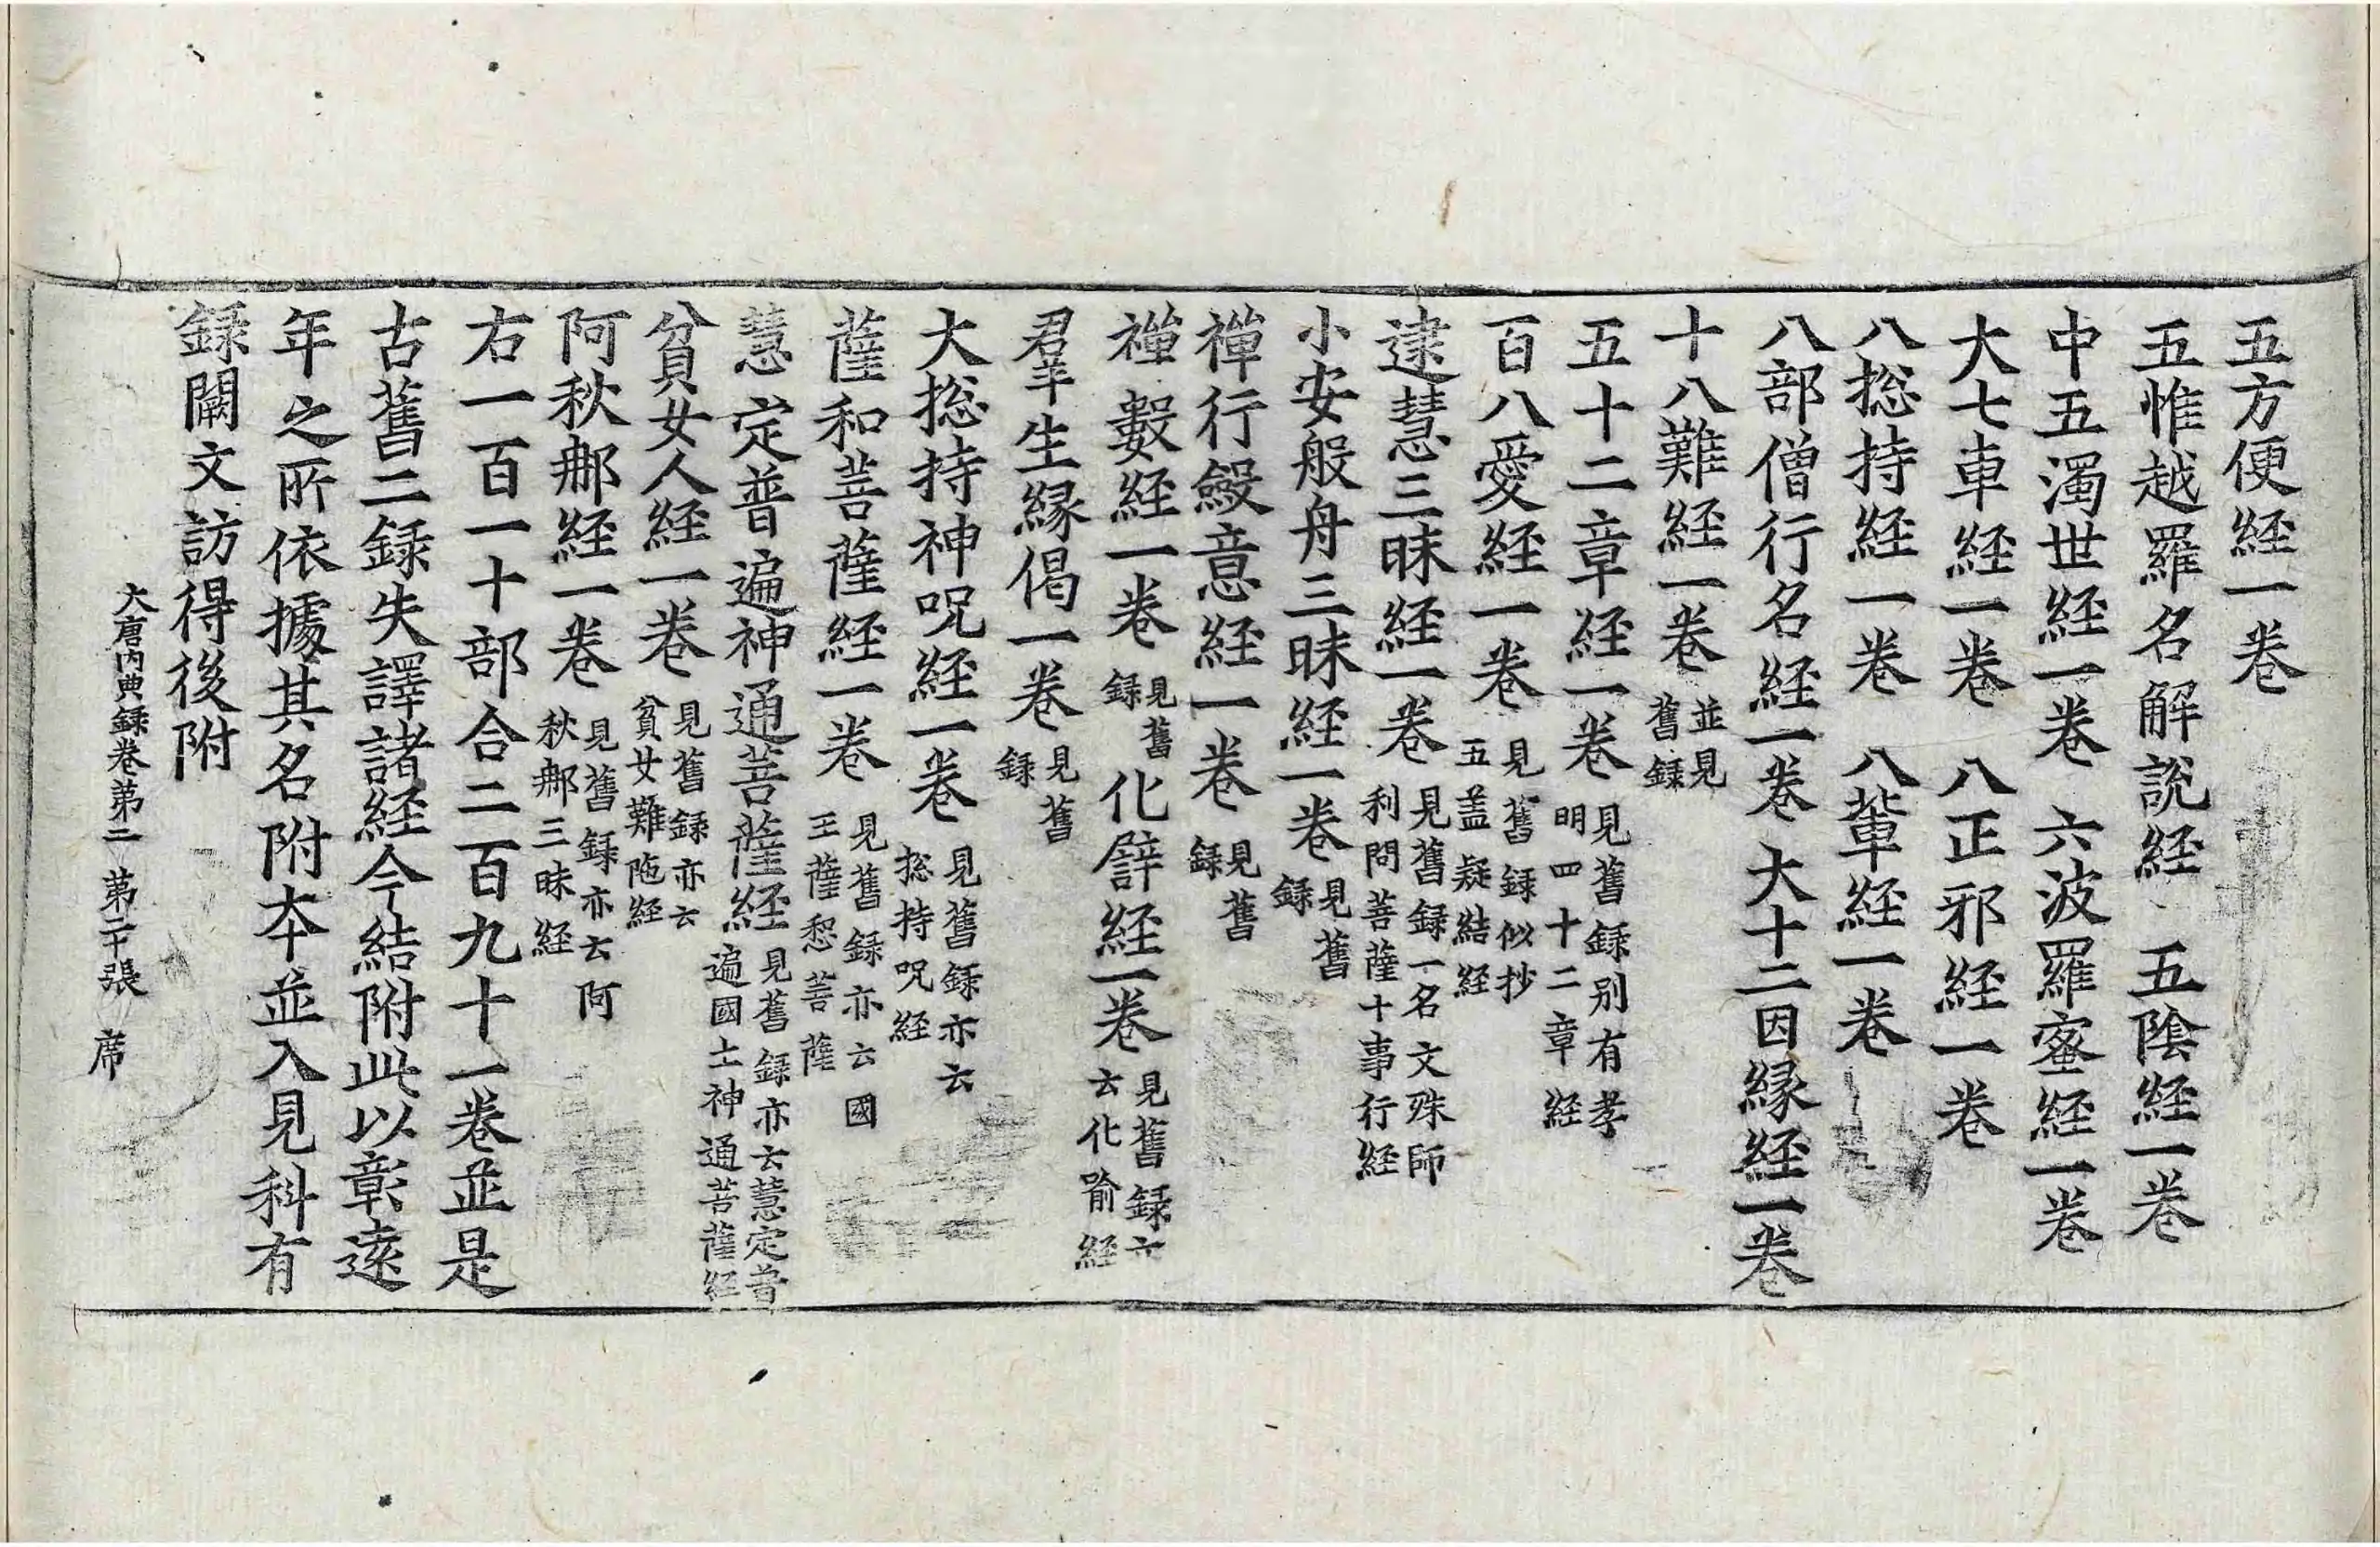 五方便経一卷
五惟越羅名解說経 五陰経一卷
中五濁世経一卷 六波羅蜜経一卷
大七車経一卷 八正邪経一卷
八捴持経一卷 八輩経一卷
八部僧行名経一卷 大十二因縁経一卷
十八難経一卷 並見舊録
五十二章経一卷 見舊録别有孝明四十二章経
百八愛経一卷 見舊録似抄五盖疑結経
逮慧三昧経一卷 見舊録一名文殊師利問菩薩十事行経
小安般舟三昧経一卷 見舊録
禪行斂意経一卷 見舊録
禪數経一卷 見舊録 化譬経一卷 見舊録亦云化喻経
羣生縁偈一卷 見舊録
大捴持神呪経一卷 見舊録亦云捴持呪経
薩和菩薩経一卷 見舊録亦云國王薩惒菩薩
慧定普遍神通菩薩経 見舊録亦云慧定普遍國土神通菩薩経
貧女人経一卷 見舊録亦云貧女難陁経
阿秋那経一卷 見舊録亦云阿秋那三昧経
右一百一十部合二百九十一卷並是
古舊二録失譯諸経今結附此以彰遠
年之所依據其名附夲並入見科有
録闕文訪得後附
大唐内典録卷苐二 苐二十張 席